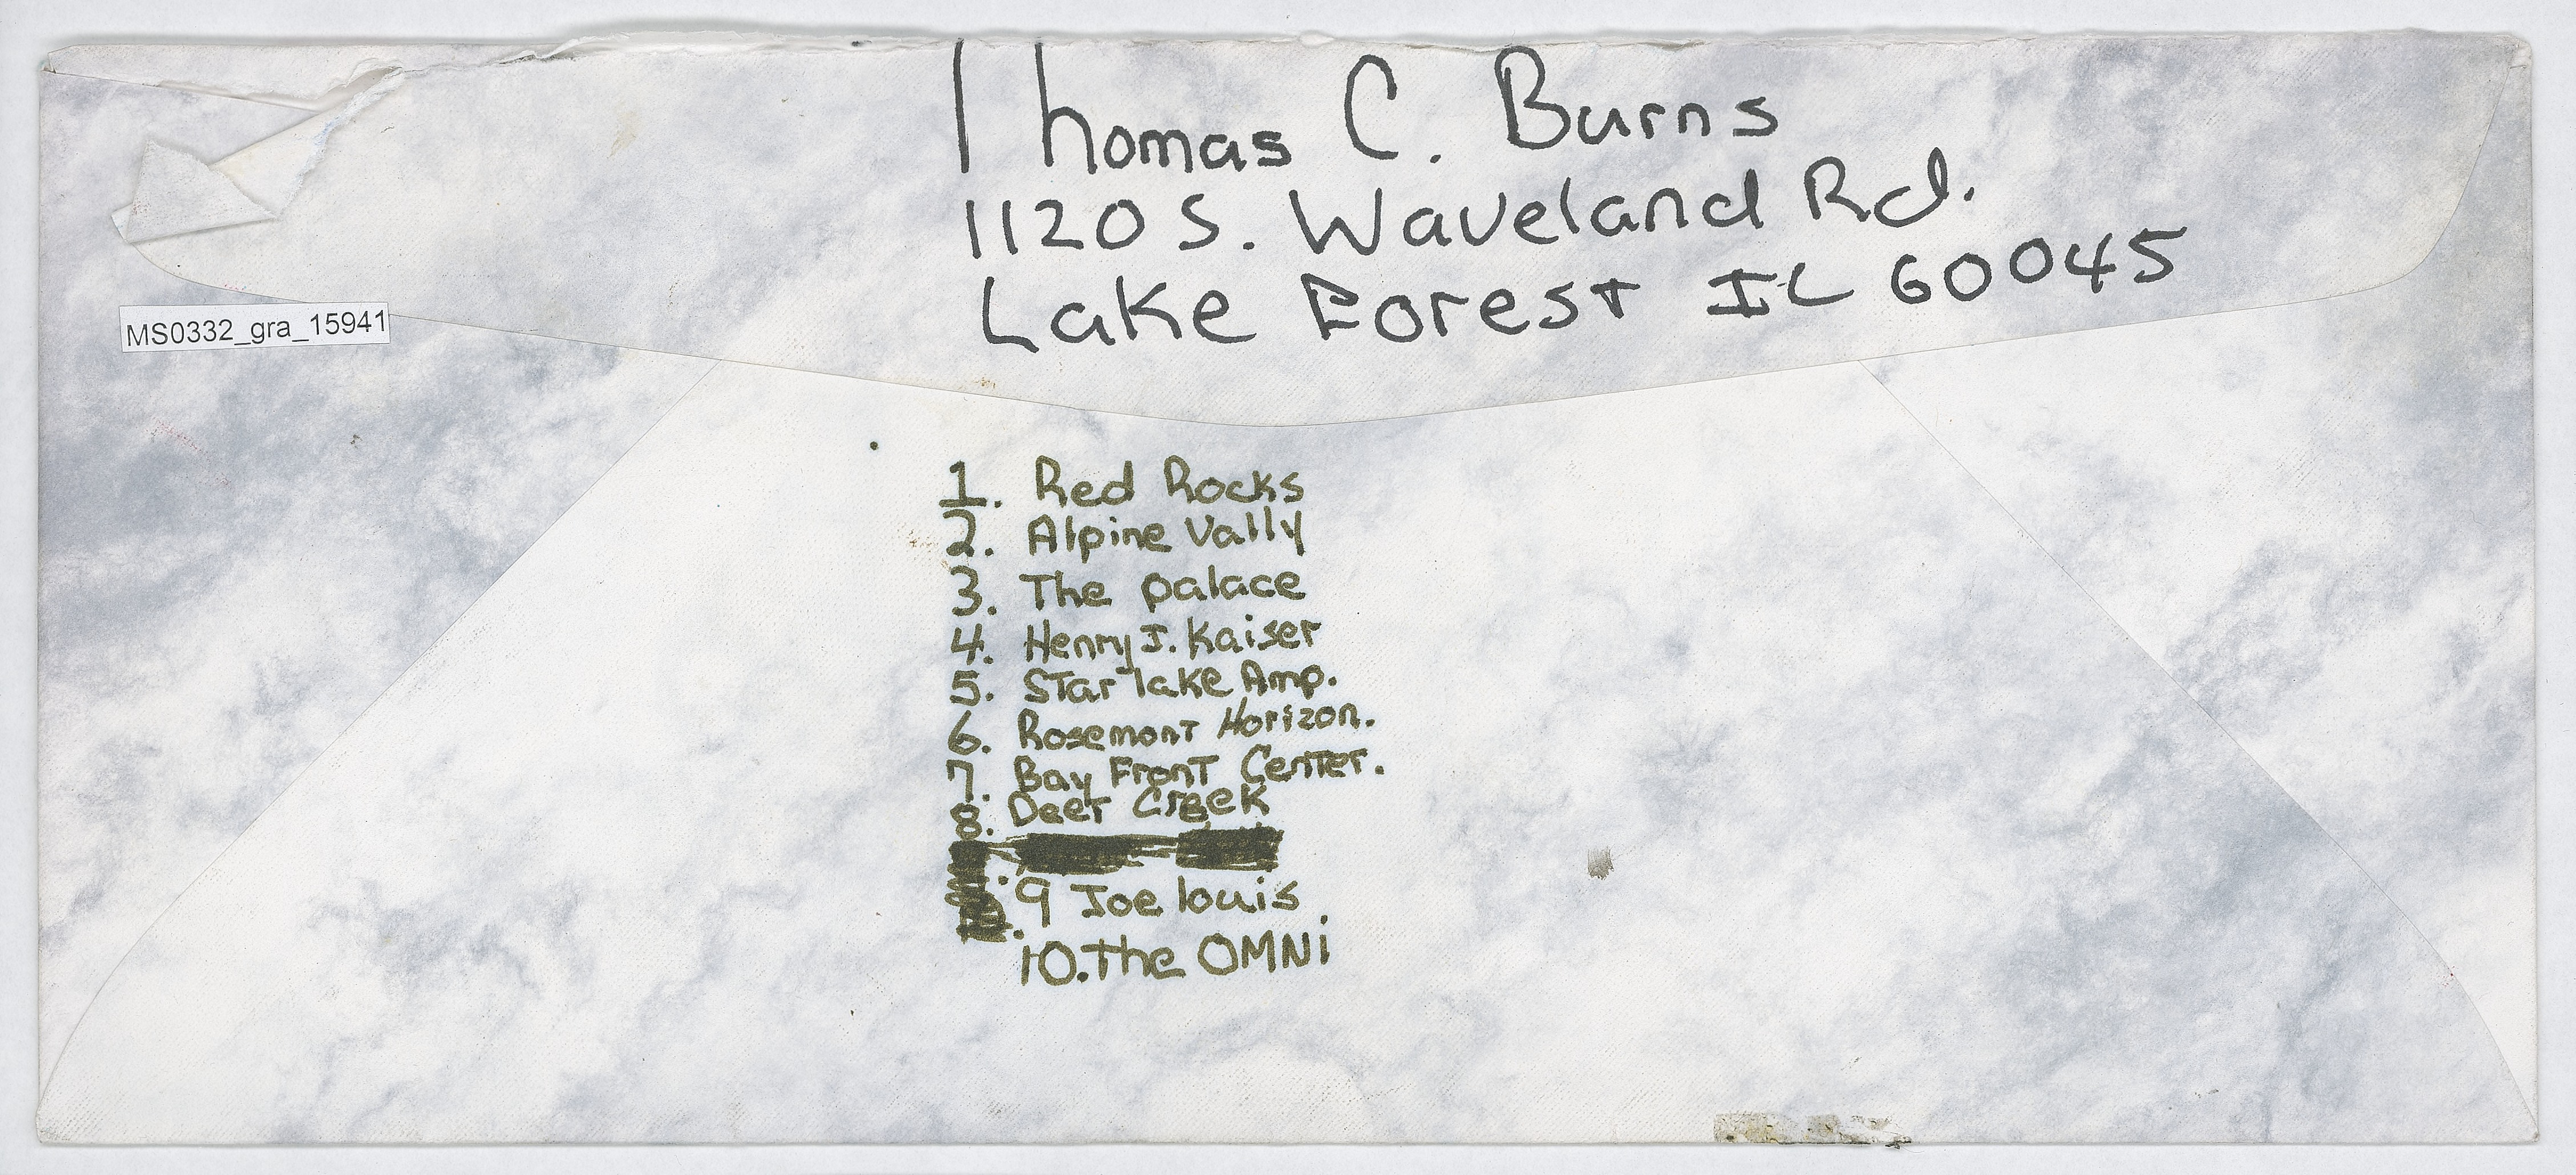 Thomas C. Burns
1120 S. Waveland Rd.
Lake Forest IL 60045
MS0332_gra_15941
1. Red Rocks
2. Alpine Vally
3. The palace
4. Henry J. Kaiser
5. Star lake Amp.
6. Rosemont Horizon.
7. Bay Front Center.
8. Deer Creek
9 Joe louis
10. The OMNi